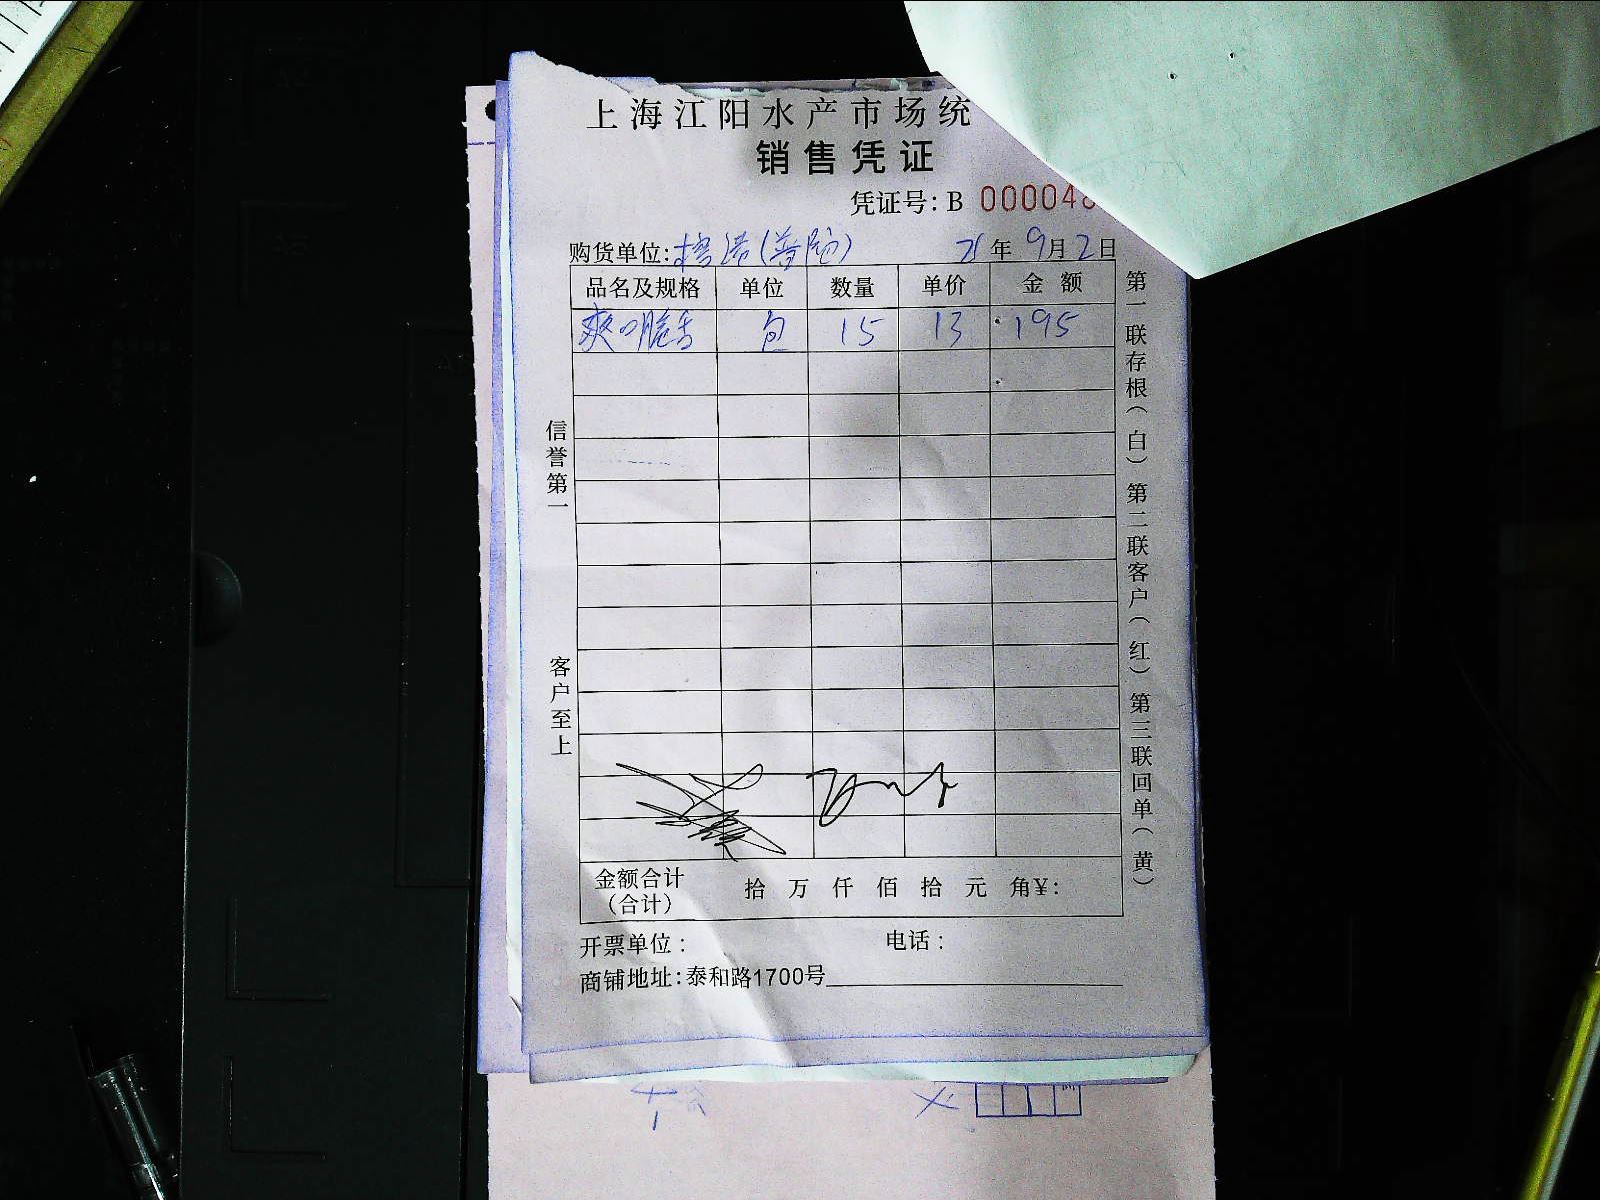 上海江阳水产市场统
销售凭证
凭证号:B 000048
购货单位: (普陀) 21年9月2日
品名及规格 单位 数量 单价 金额
爽口脆舌 包 15 13 195
信誉第一
客户至上
第一联存根(白)第二联客户(红)第三联回单(黄)
金额合计 拾万仟佰拾元角¥:
(合计)
开票单位: 电话:
商铺地址:泰和路1700号